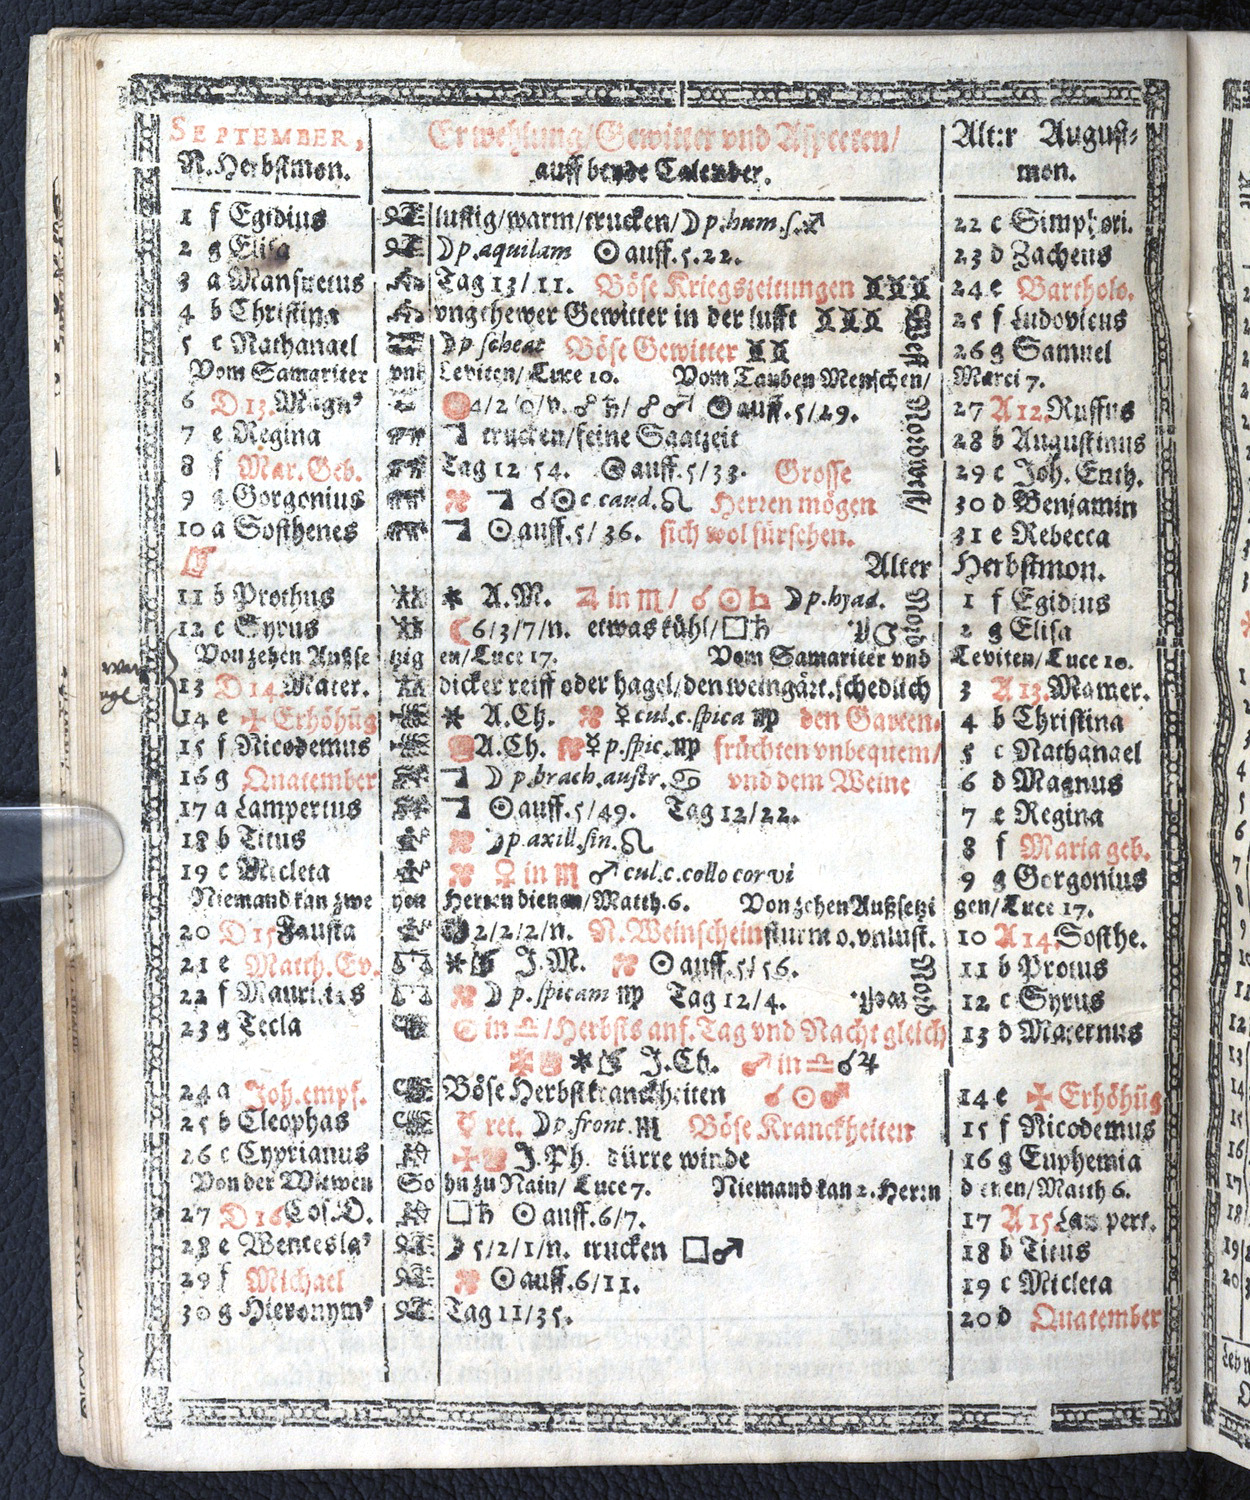 SEPTEMBER, Erwehlung/Gewitter vnd Aspecten/ Alter August-
N. Herbstmon. auff beyde Calender. mon.
1 f Egidius lustig/warm/trucken/☽ p. hum. s. ♐ 22 c Simphori.
2 g Elisa ☽ p. aquilam ☉ auff. 5. 22. 23 d Zacheus
3 a Mansuetus Tag 13/11. Böse Kriegszeitungen 24 e Bartholo.
4 b Christina vngehewer Gewitter in der lufft 25 f Ludovicus
5 c Nathanael ☽ p scheat Böse Gewitter 26 g Samuel
Vom Samariter vnd Leviten/Luce 10. Vom Tauben Menschen/ Marci 7.
6 D 13. Magn⁹ 4/2/0/v. ☍ ♄/ ☍ ♂ ☉ auff. 5/29. 27 A 12. Ruffus
7 e Regina trucken/feine Saatzeit 28 b Augustinus
8 f Mar. Geb. Tag 12 54. ☉ auff. 5/33. Grosse 29 c Joh. Enth.
9 g Gorgonius ☌ ☉ c. caud. ♌ Herren mögen 30 d Benjamin
10 a Sosthenes ☉ auff. 5/36. sich wol fürsehen. 31 e Rebecca
Alter Herbstmon.
11 b Prothus ✶ A. M. ♃ in ♏/ ☌ ☉ ♄ ☽ p. hyad. 1 f Egidius
12 c Syrus ☾ 6/3/7/n. etwas kühl/□ ♄ 2 g Elisa
Von zehen Aussetzigen/Luce 17. Vom Samariter vnd Leviten/Luce 10.
13 D 14. Mater. dicker reiff oder hagel/den weingärt. schedlich 3 A 13. Mamer.
14 e ✠ Erhöhūg ✶ A. Ch. ☿ cul. c. spica ♍ den Garten- 4 b Christina
15 f Nicodemus A. Ch. ☿ p. spic. ♍ früchten vnbequem/ 5 c Nathanael
16 g Quatember ☽ p. brach. austr. ♋ vnd dem Weine 6 d Magnus
17 a Lampertus ☉ auff. 5/49. Tag 12/22. 7 e Regina
18 b Titus ☽ p. axill. sin. ♌ 8 f Maria geb.
19 c Micleta ♀ in ♏ ♂ cul. c. collo corvi 9 g Gorgonius
Niemand kan zweyen Herren dienen/Matth. 6. Von zehen Außsetzigen/Luce 17.
20 D 15 Fausta 2/2/2/n. N. Weinschein sturm o. vnlust. 10 A 14. Sosthe.
21 e Matth. Ev. ✶ J. M. ☉ auff. 5/56. 11 b Protus
22 f Mauritis ☽ p. spicam ♍ Tag 12/4. 12 c Syrus
23 g Tecla in ♎/Herbsts anf. Tag vnd Nacht gleich 13 d Maternus
✶ J. Ch. ♂ in ♎ ☌ ♃
24 a Joh. empf. Böse Herbstkranckheiten ☌ ☉ ♂ 14 e ✠ Erhöhūg
25 b Cleophas ☿ ret. ☽ p. front. ♏ Böse Kranckheiten 15 f Nicodemus
26 c Cyprianus ✠ J. Ph. dürre winde 16 g Euphemia
Von der Witwen Sohn zu Nain/ Luce 7. Niemand kan 2. Herrn dienen/Matth 6.
27 D 16. Cos. D. □ ♄ ☉ auff. 6/7. 17 A 15 Lampert.
28 e Wentesla⁹ ☽ 5/2/1/n. trucken □ ♂ 18 b Titus
29 f Michael ☉ auff. 6/11. 19 c Micleta
30 g Hieronym⁹ Tag 11/35. 20 d Quatember